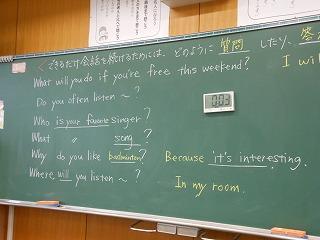 できるだけ会話を続けるためには、どのように質問したり、答
What will you do if you're free this weekend?
I wil
Do you often listen ~ ?
0:03
Who is your favorite singer?
What 〃 song ?
Why do you like badminton?
Because it's interesting.
Where will you listen ~ ?
In my room.